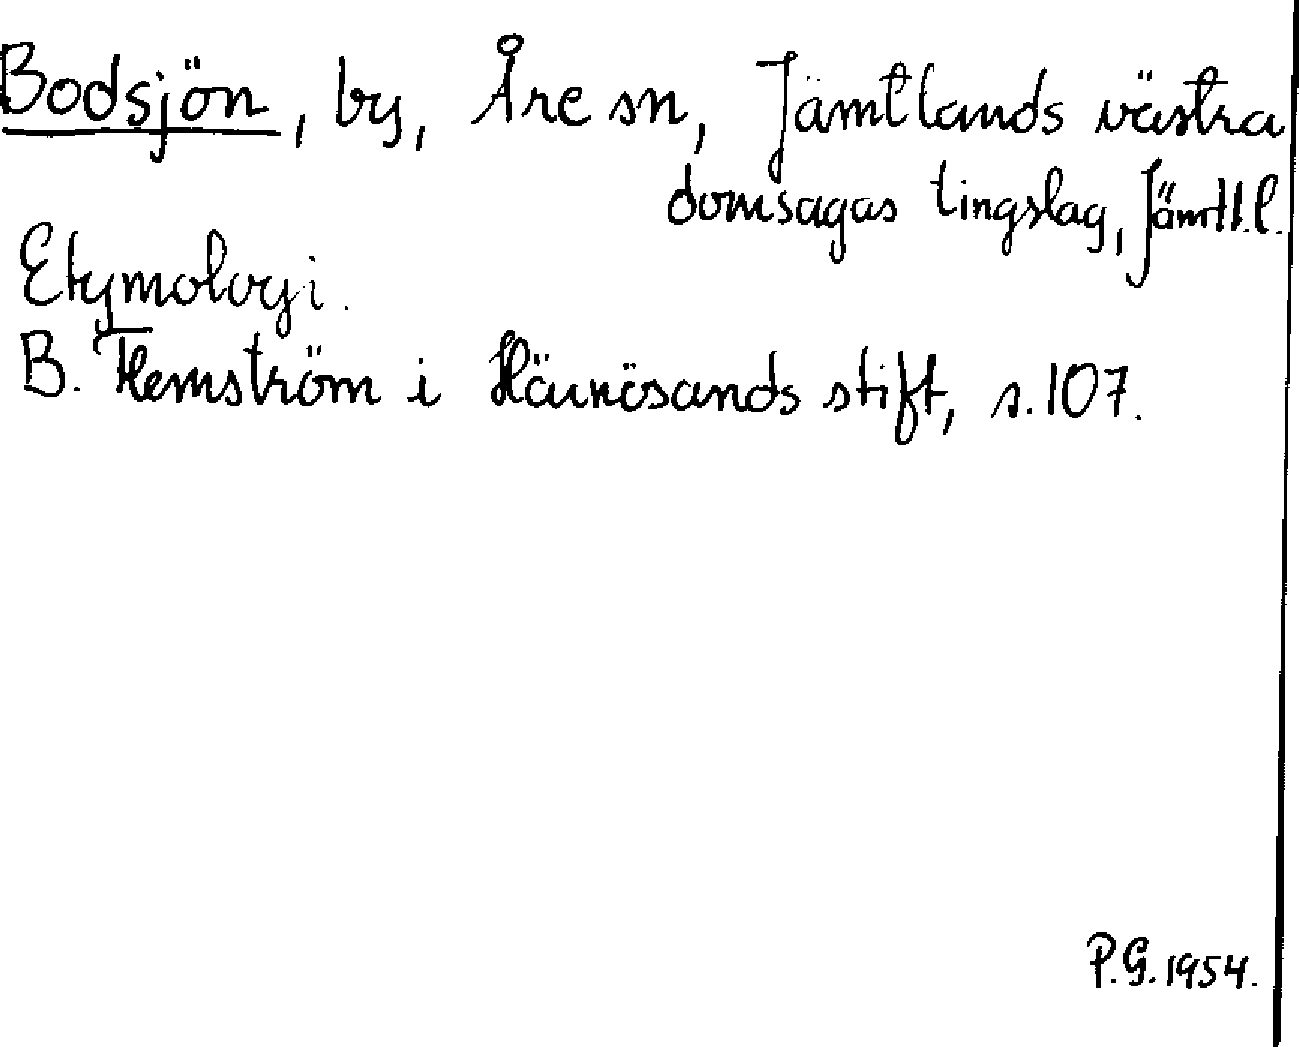 Bodsjön, by, Åre sn, Jämtlands västra
domsagas tingslag, Jämtl.l.
Etymologi.
B. Hemström i Härnösands stift, s. 107.
P.G. 1954.